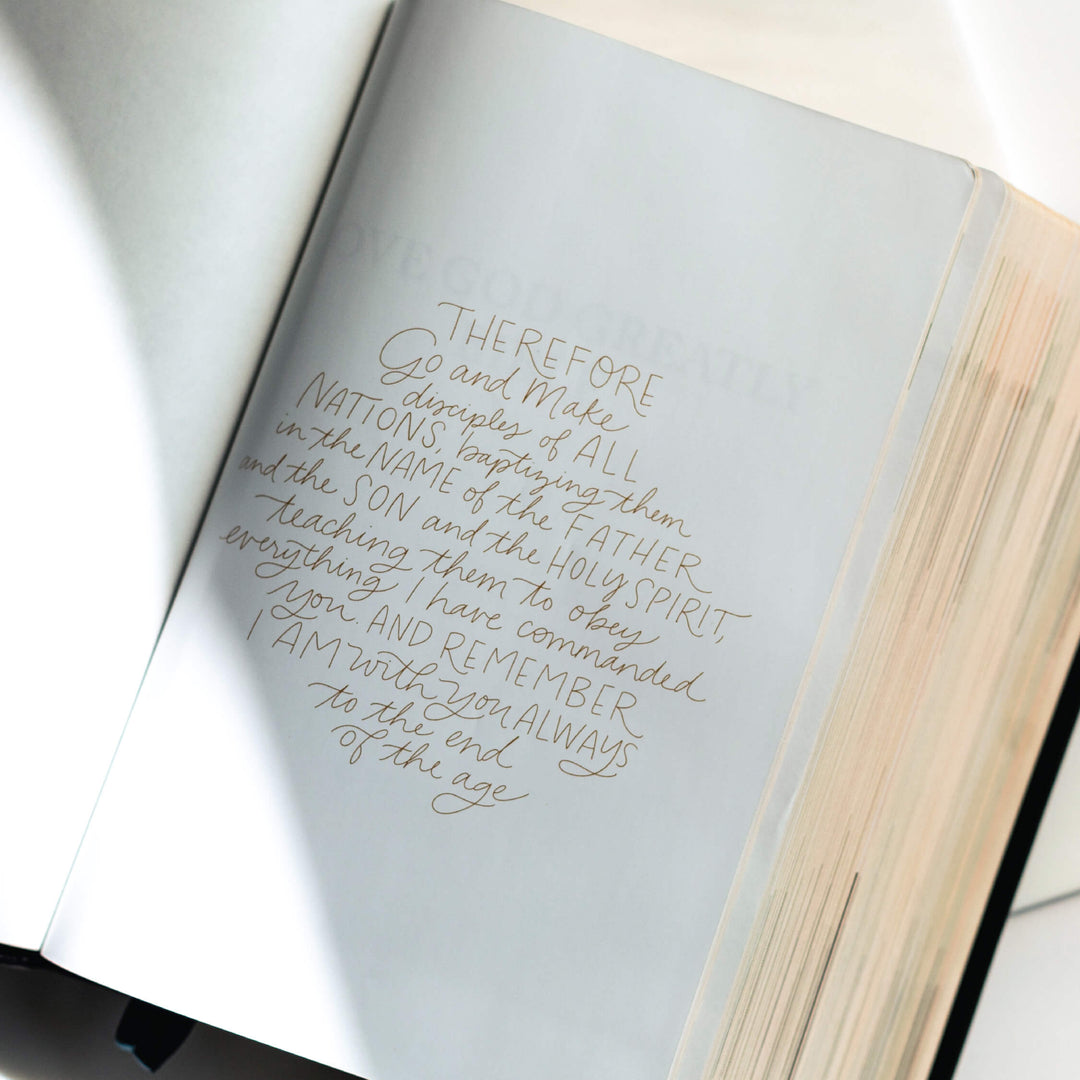 OVE GOD GREATLY
THEREFORE
Go and Make
disciples of ALL
NATIONS, baptizing them
in the NAME of the FATHER
and the SON and the HOLY SPIRIT,
teaching them to obey
everything I have commanded
you. AND REMEMBER
I AM with you ALWAYS
to the end
of the age